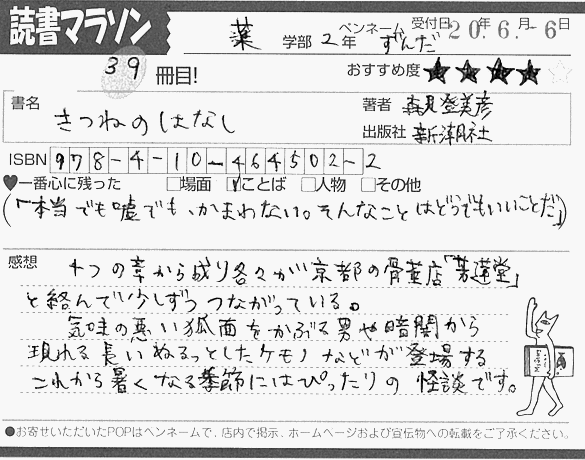 読書マラソン
薬 学部 2年 ペンネーム ずんだ 受付日 20年6月-6日
39 冊目! おすすめ度 ★★★★☆
書名 きつねのはなし
著者 森見登美彦
出版社 新潮社
ISBN 978-4-10-464502-2
♥一番心に残った □場面 ☑ことば □人物 □その他
(「本当でも嘘でも、かまわない。そんなことはどうでもいいことだ」)
感想 4つの章から成り各々が京都の骨董店「芳蓮堂」
と絡んで少しずつつながっている。
気味の悪い狐面をかぶる男や暗闇から
現れる長いぬるっとしたケモノなどが登場する
これから暑くなる季節にはぴったりの怪談です。
●お寄せいただいたPOPはペンネームで、店内で掲示、ホームページおよび宣伝物への転載をご了承ください。